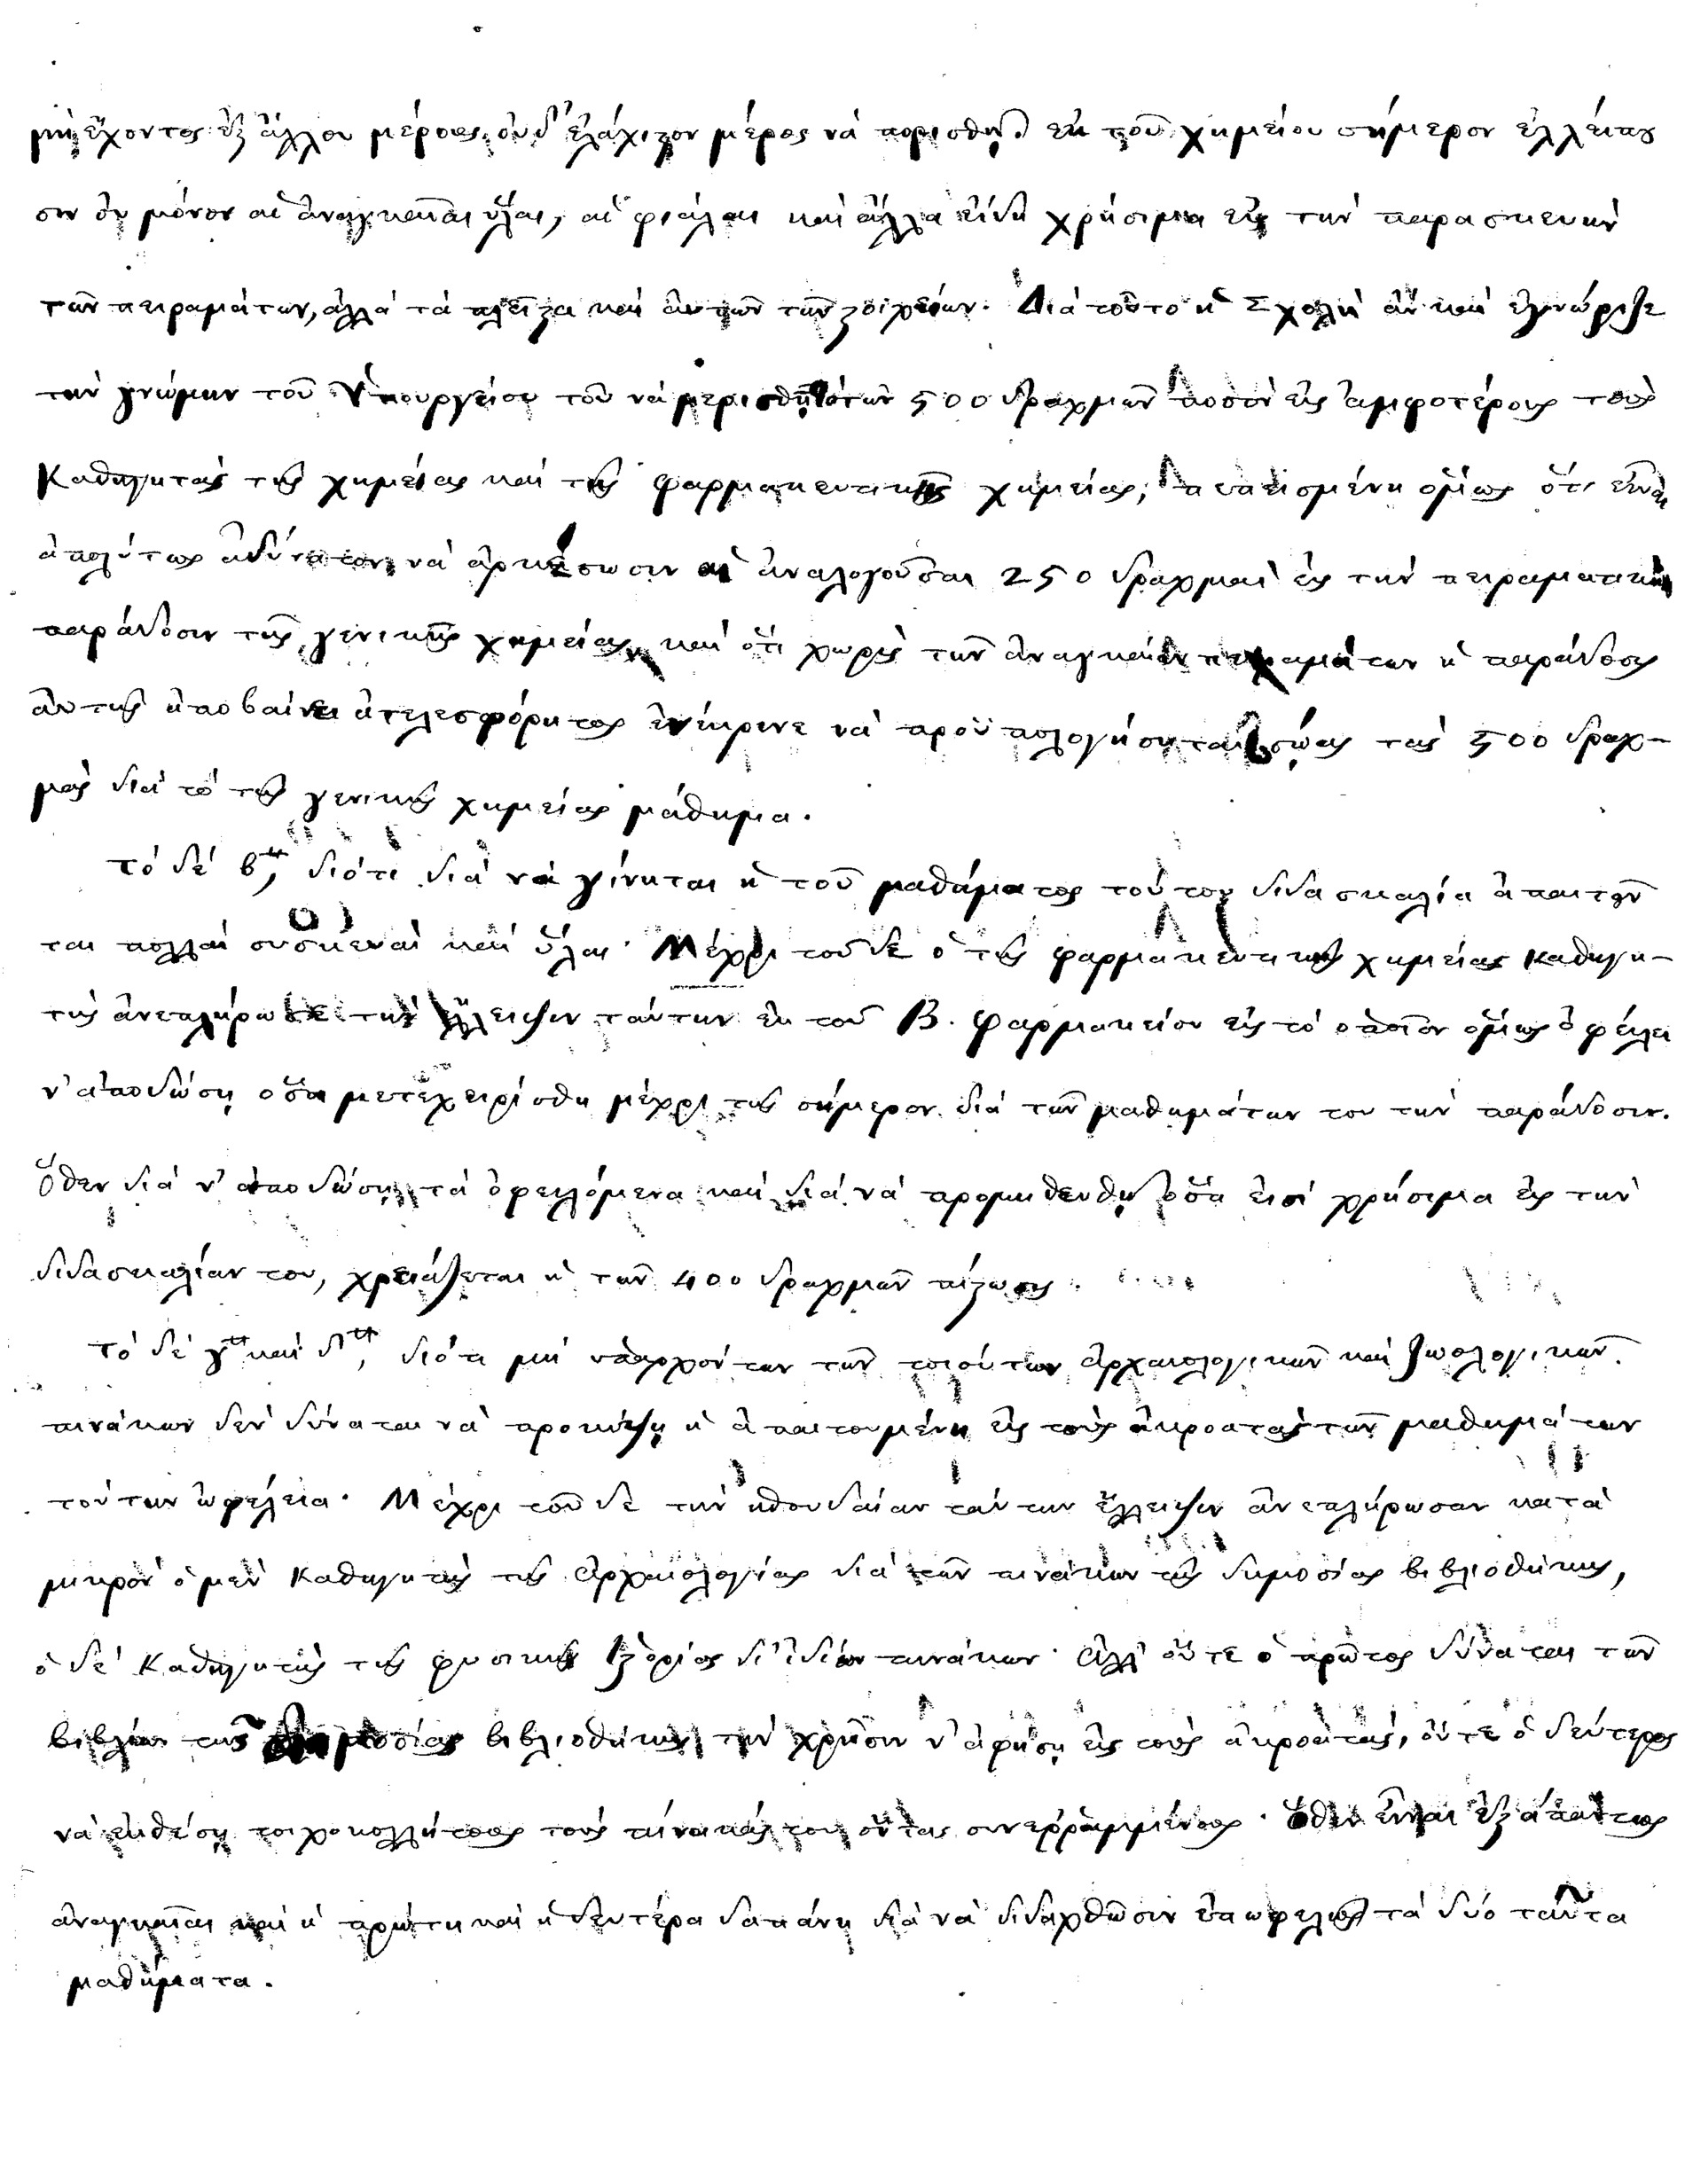 μὴ ἔχοντος ἐξ ἄλλου μέρους οὐδ' ἐλάχιστον μέρος νὰ πορισθῇ. ἐκ τοῦ χημείου σήμερον ἐλλείπου
σιν οὐ μόνον αἱ ἀναγκαῖαι ὗλαι, αἱ φιάλαι καὶ ἄλλα εἴδη χρήσιμα εἰς τὴν παρασκευὴν
τῶν πειραμάτων, ἀλλὰ τὰ πλεῖστα καὶ αὐτῶν τῶν στοιχείων. Διὰ τοῦτο ἡ Σχολὴ ἂν καὶ ἐγνώριζε
τὴν γνώμην τοῦ Ὑπουργείου τοῦ νὰ μερισθῇ τὸ τῶν 500 δραχμῶν ποσὸν εἰς ἀμφοτέρους τοὺς
Καθηγητὰς τῆς χημείας καὶ τῆς φαρμακευτικῆς χημείας, πεπεισμένη ὅμως ὅτι εἶναι
ἀπολύτως ἀδύνατον νὰ ἀρκέσωσιν αἱ ἀναλογοῦσαι 250 δραχμαὶ εἰς τὴν πειραματικὴν
παράδοσιν τῆς γενικῆς χημείας, καὶ ὅτι χωρὶς τῶν ἀναγκαίων πειραμάτων ἡ παράδοσις
αὐτῆς ἀποβαίνει ἀτελεσφόρητος ἐνέκρινε νὰ προϋπολογήσῃ τὰς σώας τὰς 500 δραχ-
μὰς διὰ τὸ τῆς γενικῆς χημείας μάθημα.
Τὸ δὲ β<sup>ον</sup>, διότι διὰ νὰ γίνηται ἡ τοῦ μαθήματος τούτου διδασκαλία ἀπαιτοῦν
ται πολλαὶ συσκευαὶ καὶ ὗλαι. Μέχρι τοῦδε ὁ τῆς φαρμακευτικῆς χημείας καθηγη-
τὴς ἀνεπλήρωσε τὴν ἔλλειψιν ταύτην ἐκ τοῦ Β. Φαρμακείου εἰς τὸ ὁποῖον ὅμως ὀφείλει
ν' ἀποδώσῃ ὅσα μετεχειρίσθη μέχρι τῆς σήμερον διὰ τῶν μαθημάτων του τὴν παράδοσιν.
Ὅθεν διὰ ν' ἀποδώσῃ τὰ ὀφειλόμενα καὶ διὰ νὰ προμηθευθῇ ὅσα εἰσὶ χρήσιμα εἰς τὴν
διδασκαλίαν του, χρειάζεται ἡ τῶν 400 δραχμῶν πίστωσις.
Τὸ δὲ γ<sup>ον</sup> καὶ δ<sup>ον</sup>, διότι μὴ ὑπαρχόντων τῶν τοιούτων ἀρχαιολογικῶν καὶ ζωολογικῶν
πινάκων δὲν δύναται νὰ προκύψῃ ἡ ἀπαιτουμένη εἰς τοὺς ἀκροατὰς τῶν μαθημάτων
τούτων ὠφέλεια. Μέχρι τοῦδε τὴν σπουδαίαν ταύτην ἔλλειψιν ἀνεπλήρωσαν κατὰ
μικρὸν ὁ μὲν Καθηγητὴς τῆς ἀρχαιολογίας διὰ τῶν πινάκων τῆς δημοσίας βιβλιοθήκης,
ὁ δὲ Καθηγητὴς τῆς φυσικῆς Ἱστορίας δι' ἰδίων πινάκων. Ἀλλ' οὔτε ὁ πρῶτος δύναται τῶν
βιβλίων τῆς δημοσίας βιβλιοθήκης τὴν χρῆσιν ν' ἀφήσῃ εἰς τοὺς ἀκροατάς, οὔτε ὁ δεύτερος
νὰ ἐκθέσῃ τοιχοκολλήτους τοὺς πίνακάς του ὄντας συνερραμμένους. Ὅθεν εἶναι ἐξ ἅπαντος
ἀναγκαῖαι καὶ ἡ πρώτη καὶ ἡ δευτέρα δαπάνη διὰ νὰ διδαχθῶσιν ἐπωφελῶς τὰ δύο ταῦτα
μαθήματα.